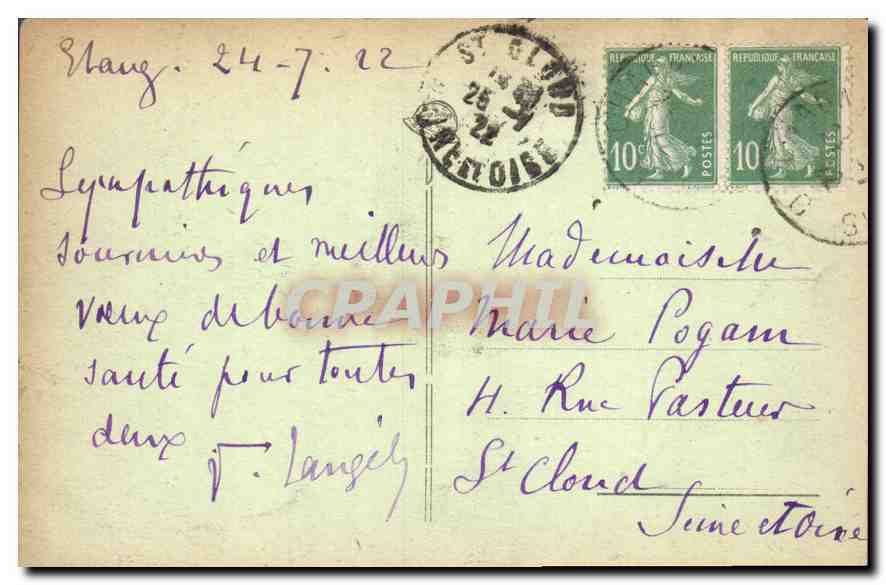 Etang. 24-7.22
Sympathiques
souvenirs et meilleurs
vœux de bonne
santé pour toutes
deux
ST CLOUD
25
22
SNE ET OISE
REPUBLIQUE FRANÇAISE
10 c
POSTES
REPUBLIQUE FRANÇAISE
10
POSTES
Mademoiselle
Marie Pogam
4. Rue Pasteur
St Cloud
Seine et Oise
CPAPHIL